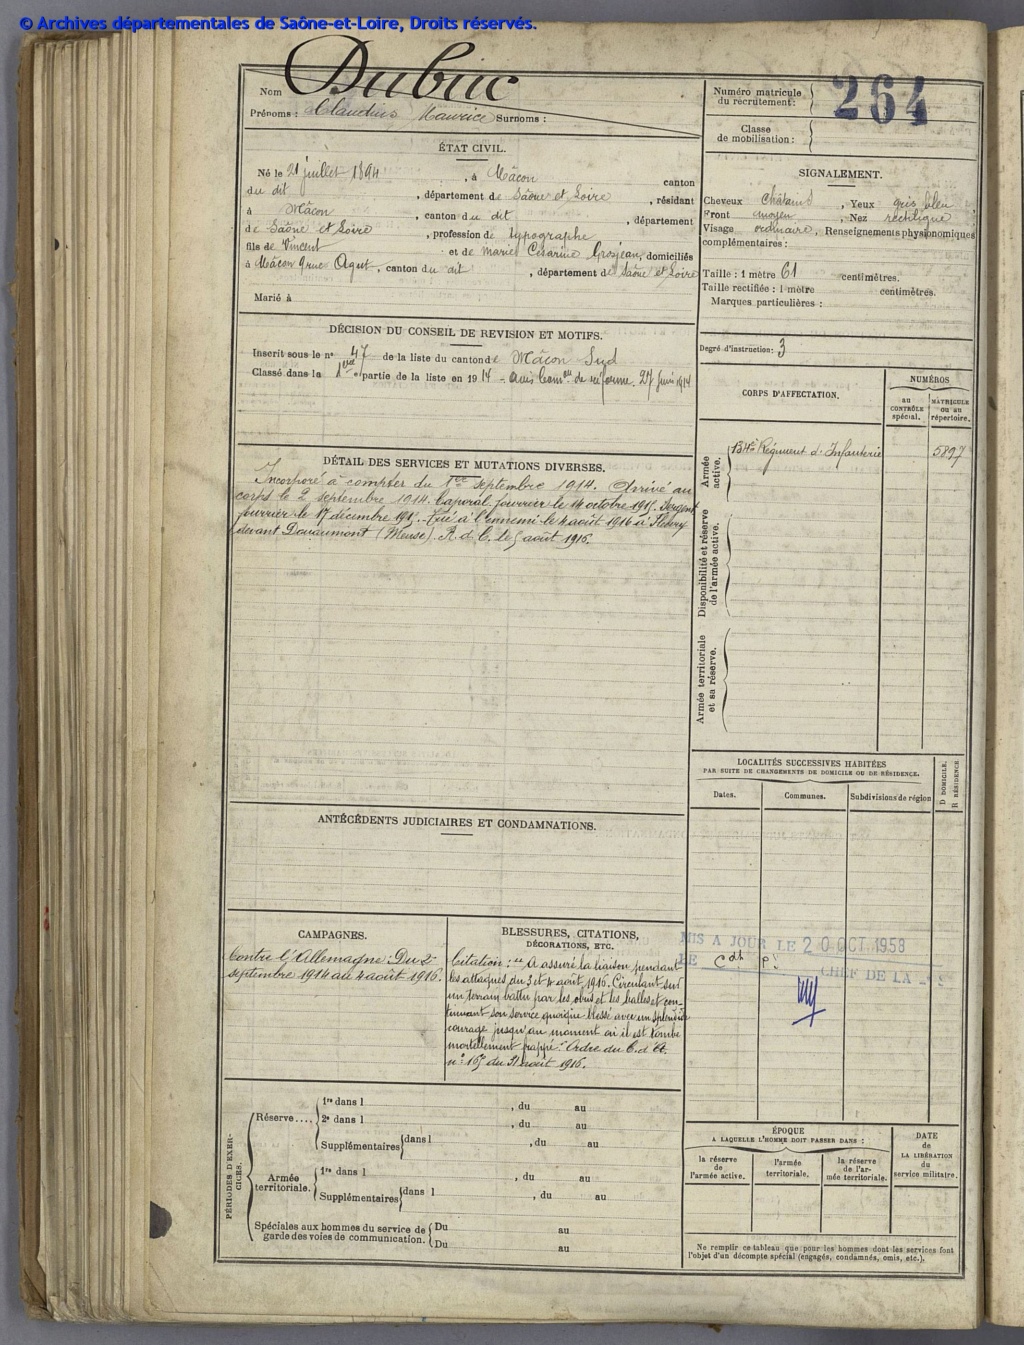 © Archives départementales de Saône-et-Loire, Droits réservés.
Nom Dubuc
Prénoms : Claudius Maurice Surnoms :
ÉTAT CIVIL.
Né le 21 juillet 1894, à Mâcon canton
du dit, département de Saône et Loire, résidant
à Mâcon, canton du dit, département
de Saône et Loire, profession de typographe
fils de Vincent et de marie Césarine Grosjean, domiciliés
à Mâcon 9 rue Agut, canton du dit, département de Saône et Loire
Marié à
DÉCISION DU CONSEIL DE REVISION ET MOTIFS.
Inscrit sous le n° 47 de la liste du canton de Mâcon Sud
Classé dans la 1ère partie de la liste en 1914 - avis Comon de réforme. 27 juin 1914
DÉTAIL DES SERVICES ET MUTATIONS DIVERSES.
Incorporé à compter du 1er septembre 1914. Arrivé au
corps le 2 septembre 1914. Caporal fourrier le 14 octobre 1915. Sergent
fourrier le 17 décembre 1915. Tué à l'ennemi le 4 août 1916 à Fleury
devant Douaumont (Meuse). R. d. C. le 5 août 1916.
ANTÉCÉDENTS JUDICIAIRES ET CONDAMNATIONS.
CAMPAGNES.
Contre l'Allemagne : Du 2
septembre 1914 au 4 août 1916.
BLESSURES, CITATIONS,
DÉCORATIONS, ETC.
Citation : "A assuré la liaison pendant
les attaques du 3 et 4 août 1916. Circulant sur
un terrain battu par les obus et les balles et con-
tinuant son service quoique blessé avec un splendide
courage jusqu'au moment où il est tombé
mortellement frappé". Ordre du C. d'A.
n° 165 du 31 août 1916.
PÉRIODES D'EXER-
CICES.
Réserve....
1re dans l , du au
2e dans l , du au
Supplémentaires dans l , du au
Armée
territoriale.
1re dans l , du au
Supplémentaires dans l , du au
Spéciales aux hommes du service de
garde des voies de communication.
Du au
Du au
Numéro matricule
du recrutement : 264
Classe
de mobilisation :
SIGNALEMENT.
Cheveux Châtains, Yeux gris bleu
Front moyen, Nez rectiligne
Visage ordinaire, Renseignements physionomiques
complémentaires :
Taille : 1 mètre 61 centimètres.
Taille rectifiée : 1 mètre centimètres.
Marques particulières :
Degré d'instruction : 3
CORPS D'AFFECTATION.
NUMÉROS
au
CONTRÔLE
spécial.
MATRICULE
ou au
répertoire.
Armée
active.
134e Régiment d'Infanterie 5897
Disponibilité et réserve
de l'armée active.
Armée territoriale
et sa réserve.
LOCALITÉS SUCCESSIVES HABITÉES
PAR SUITE DE CHANGEMENTS DE DOMICILE OU DE RÉSIDENCE.
D DOMICILE,
R RÉSIDENCE.
Dates. Communes. Subdivisions de région
MIS A JOUR LE 20 OCT 1958
LE Cdt P.
CHEF DE LA
ÉPOQUE
A LAQUELLE L'HOMME DOIT PASSER DANS :
la réserve
de
l'armée active.
l'armée
territoriale.
la réserve
de l'ar-
mée territoriale.
DATE
de
LA LIBÉRATION
du
service militaire.
Ne remplir ce tableau que pour les hommes dont les services font
l'objet d'un décompte spécial (engagés, condamnés, omis, etc.).